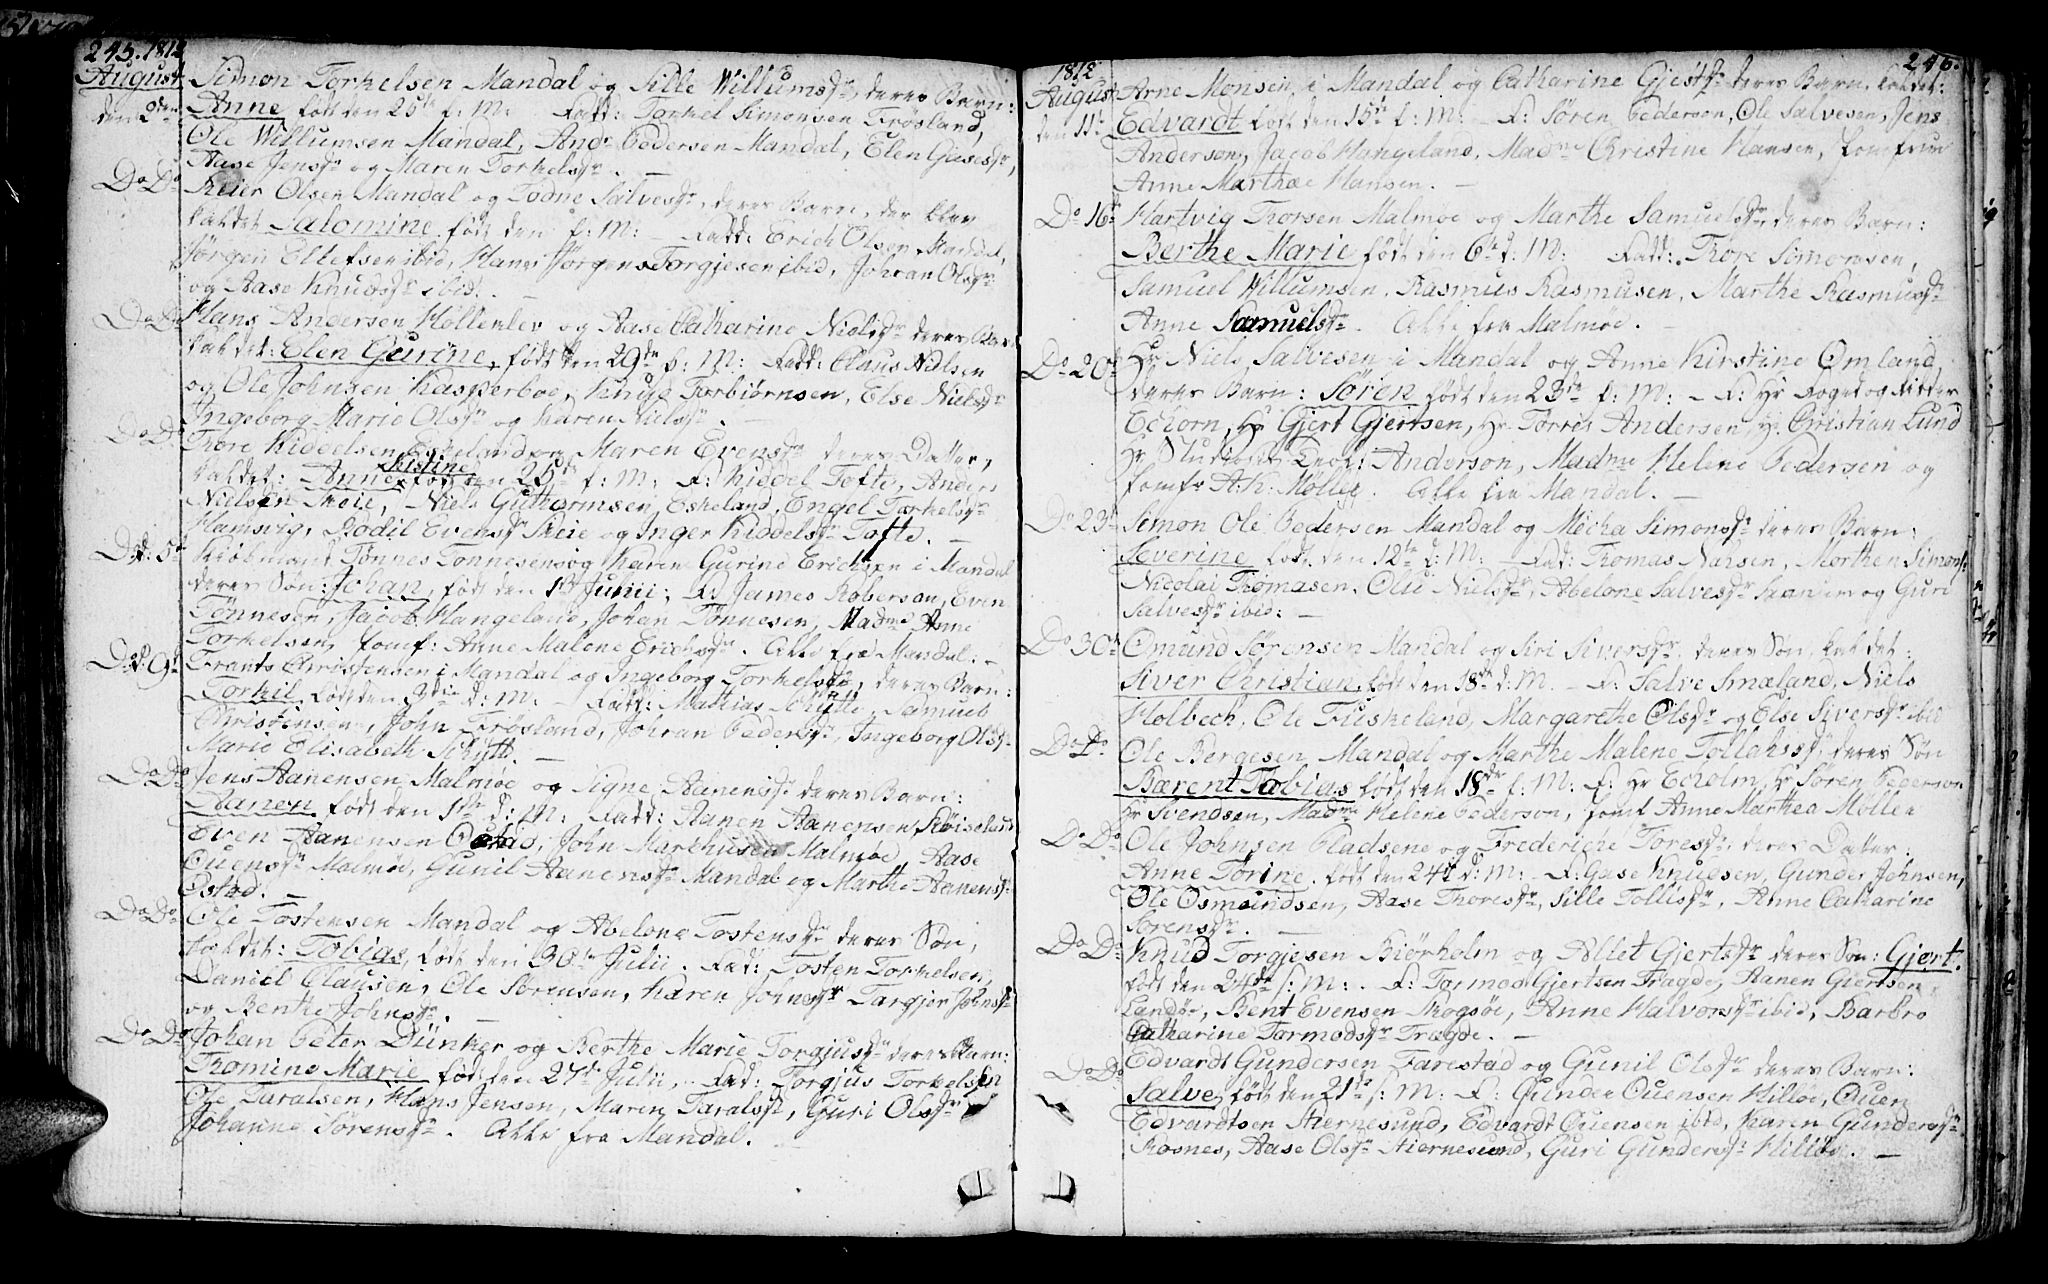 245. 1812
August Simon Torkelsen Mandal og Sille Willumsdr, deres Barn:
den 2den Anne født den 25te f: M: Fadd: Torkel Simonsen Frøsland,
Ole Willumsen Mandal, And: Pedersen Mandal, Elen Giesesdr,
Aase Jensdr og Maren Torkelsdr. –
Do Do Reier Olsen Mandal og Todne Salvesdr, deres Barn, der blev
kaldet Salomine født den f: M: – Fadd: Erich Olsen Mandal,
Jørgen Ellefsen ibid, Hans Jørgen Torgjesen ibid, Johran Olsdr
og Aase Knudsdr ibid. –
Do Do Hans Andersen Holleulev og Aase Catharine Nielsdr deres Barn
kaldet: Elen Gurine, født den 29de f: M: Fadd: Claus Nilsen
og Ole Johnsen Kasperboe, Knud Torbiørnsen, Else Nielsdr
Ingeborg Marie Olsdr og Karen Nielsdr. –
Do Do Tore Kiddelsen Eskeland og Maren Evensdr deres Datter,
Kistine
kaldet: Anne født den 25de f: M: F: Kiddel Tofte, Anders
Nielsen Skeie, Niels Guthormsen Eskeland, Engel Torkelsdr
Hamsvig, Bodil Evensdr Skeie og Inger Kiddelsdr Tofte. –
Do d: 5te Kiøbmand Tønnes Tønnesen og Karen Gurine Erichsen i Mandal
deres Søn: Johan, født den 13 Junii; F: James Roberson, Even
Tønnesen, Jacob Hangeland, Johan Tønnesen, Madme Anne
Torkelsen, Jomf: Anne Malene Erichsdr. Alle fra Mandal: –
Do d: 9de Frants Christensen i Mandal og Ingeborg Torkelsdr, deres Barn:
Torkil født den 3die d: M: – Fadd: Mathias Schytte, Samuel
Christensen, John Frøsland, Johran Pedersdr, Ingeborg Olsdr
Marie Elisabeth Schytt. –
Do Do Jens Aanensen Malmøe og Signe Aanensdr deres Barn:
Aanen født den 1ste d: M: Fadd: Aanen Aanensen Røiseland
Even Aanensen Ostad, John Markhusen Malmøe, Aase
Ouensdr Malmøe, Gunil Aanensdr Mandal og Marthe Aanensdr
Ostad. –
Do Do Ole Tostensen Mandal og Abelone Tostensdr deres Søn,
kaldet: Tobias, født den 30te Julii. Fad: Tosten Torkelsen,
Daniel Clausen, Ole Sørensen, Karen Johnsdr Targjer Johnsdr
og Benthe Johnsdr. –
Do Do Johan Peter Dünker og Berthe Marie Torgjusdr deres Barn:
Tomine Marie født den 27de Julii, – Fad: Torgjus Torkelsen
Ole Taralsen, Hans Jensen, Maren Taralsdr, Guri Olsdr
Johanne Sørensdr. Alle fra Mandal.
246.
1812
August Arne Monsen i Mandal og Catharine Gjestdr deres Barn, kaldet:
den 11te Edvardt født den 15de f: M: – F: Søren Pedersen, Ole Salvesen, Jens
Andersen, Jacob Hangeland, Madme Christine Hansen, Jomfrue
Anne Marthæ Hansen. –
Do 16de Hartvig Thorsen Malmøe og Marthe Samuelsdr deres Barn:
Berthe Marie født den 6te d: M: Fadd: Thore Simonsen,
Samuel Willumsen, Rasmus Rasmusen, Marthe Rasmusdr
Anne Samuelsdr. Alle fra Malmøe. –
Do 20de Hr Niels Salvesen i Mandal og Anne Kirstine Omland,
deres Barn: Søren født den 23de f: M: – F: Hr Foged og Ritter
Echorn, Hr Gjert Gjertsen, Hr Tørris Andersen, Hr Christian Lund
Hr Studiosus Andersen, Madme Helene Pedersen og
Jomfr A: K: Møller. Alle fra Mandal. –
Do 23de Simon Ole Pedersen Mandal og Mecha Simonsdr deres Barn:
Severine født den 12te d: M: – Fad: Thomas Narsen, Morthen Simons:
Nicolai Thomasen, Olu Nielsdr, Abelone Salvesdr og Guri
Salvesdr ibid: –
Do 30te Omund Sørensen Mandal og Siri Siversdr deres Søn, kaldet:
Siver Christian, født den 18de d: M. – F: Salve Smæland, Niels
Holbech, Ole Fuskeland, Margarethe Olsdr og Else Siversdr ibid
Do Do Ole Bergesen Mandal og Marthe Malene Tollahsdr, deres Søn
Bærent Tobias født den 18de f: M: F: Hr Echolm, Hr Søren Pedersen
Hr Svendsen, Madme Helene Pedersen, Jomf Anne Marthea Møller
Do Do Ole Johnsen Pladsene og Frederiche Toresdr, deres Datter:
Anne Torine født den 24de d: M: – F: Gase Knudsen, Gunder Johnsen,
Ole Osmundsen, Aase Thoresdr, Sille Tollisdr, Anne Catharine
Sørensdr. –
Do Do Knud Torgjesen Biørholm og Allet Gjertsdr deres Søn: Gjert.
født den 24de f: M: . F: Tormod Gjertsen Tragde, Aanen Giertsen
Landøe, Bent Evensen Skogsøe, Anne Halvorsdr ibid, Barbro
Catharine Tormodsdr Tragde. –
Do Do Edvardt Gundersen Farestad og Gunil Olsdr deres Barn:
Salve, født den 21de f: M: F: Gunder Ouensen Hilløe, Ouen
Edvardtsen Stiernesund, Edvardt Ouensen ibid, Karen Gundersdr
Rosnes, Aase Olsdr Stiernesund, Guri Gundersdr Hilløe. –